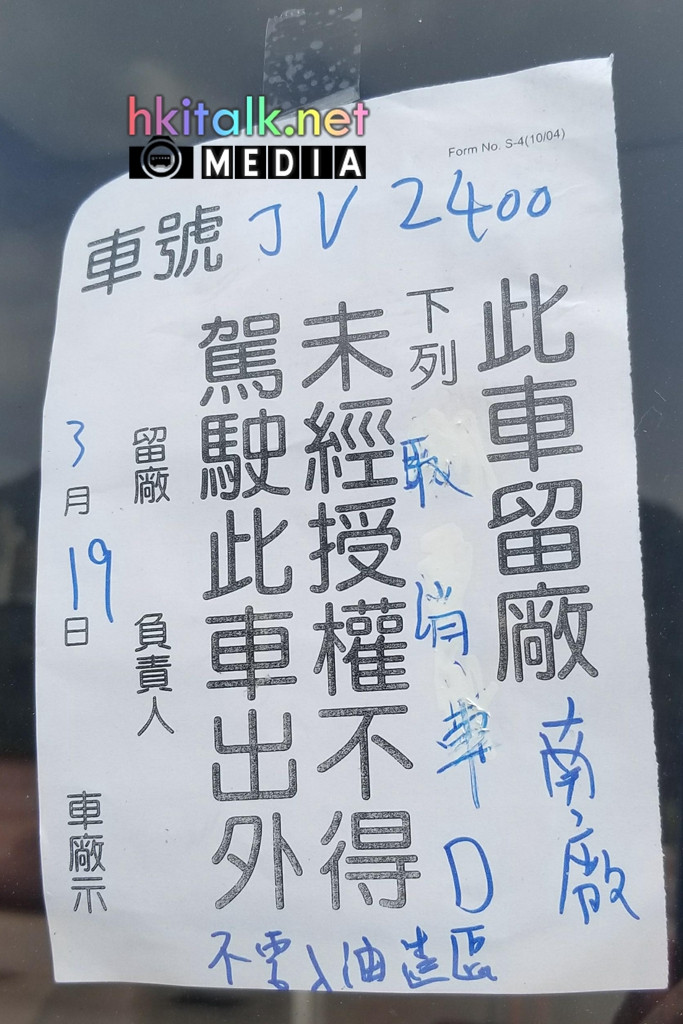 hkitalk.net
MEDIA
Form No. S-4(10/04)
車號 JV 2400
此車留廠 南廠
下列 取消車 D
未經授權不得
駕駛此車出外
留廠 負責人
3月19日
車廠示
不需入油